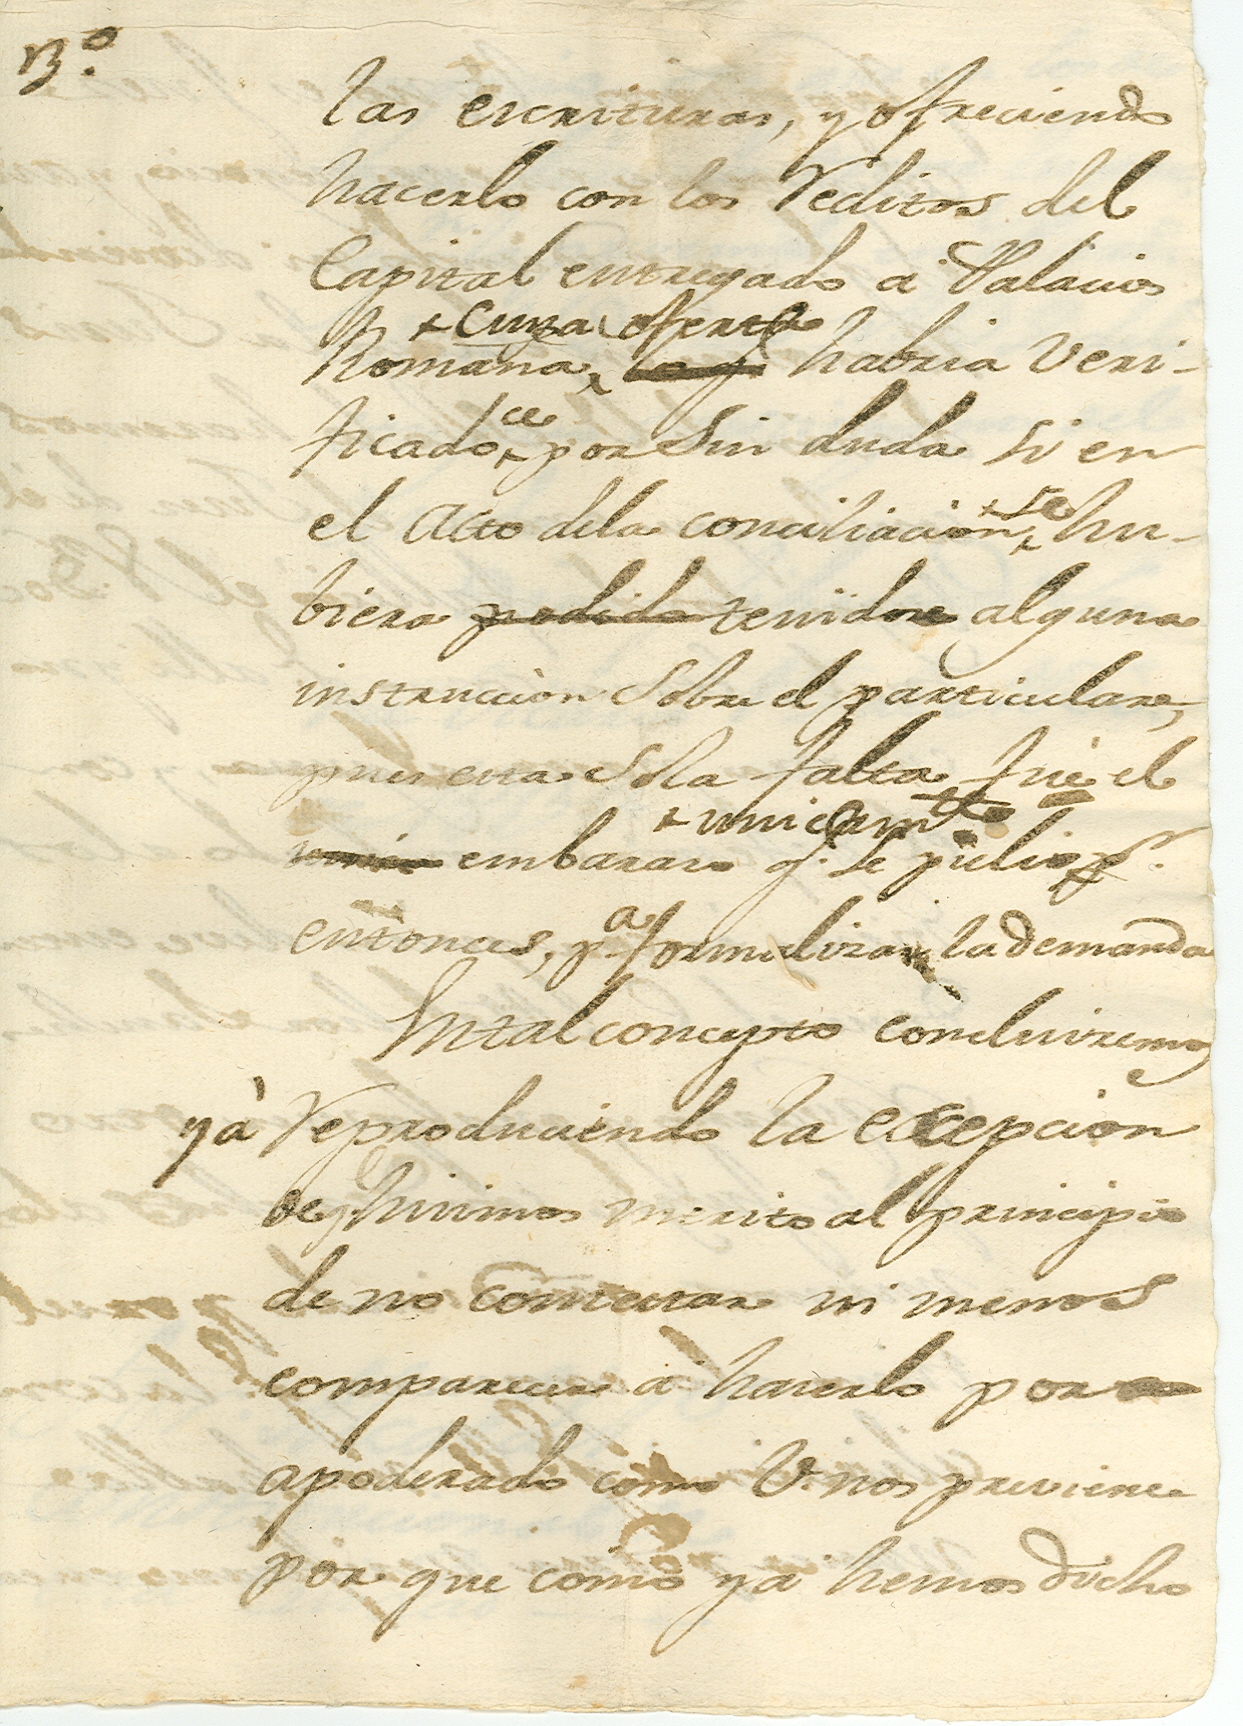 B.º
las escrituras, y ofreciendo
hacerlo con los reditos del
Capital entregado a Palacios
+ Cuya oferta
Romaña, lo q habria veri-
ce
ficado por sin duda si en
+ se
el Acto dela conciliacion hu-
biera podido tenido alguna
instruccion sobre el particular,
pues esta sola falta fuè el
+ unicamte
unico embarazo q.e se puso pr.
entonces, pa formalizar la demanda
En tal concepto concluiremos
yà reproduciendo la excepcion
de q hicimos merito al principio
de no contestar ni menos
comparecer à hacerlo por
apoderado como V. nos previene
por que como yà hemos dicho